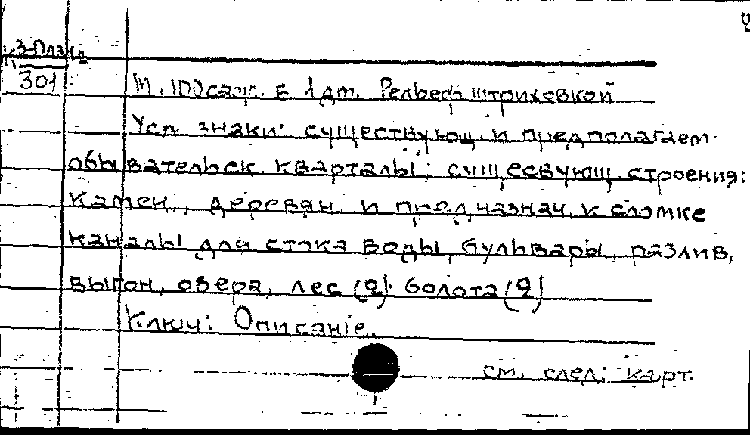 301
М. 100 саж. в 1 дм. Рельеф штриховкой
Усл. знаки: существующ. и предполагаем.
обывательск. кварталы; сущесвующ. строения:
камен., деревян. и предназнач. к сломке
каналы для стока воды, бульвары, разлив,
выгон, озера, лес (2) болота (2)
Ключ: Описанiе.
см. след. карт.